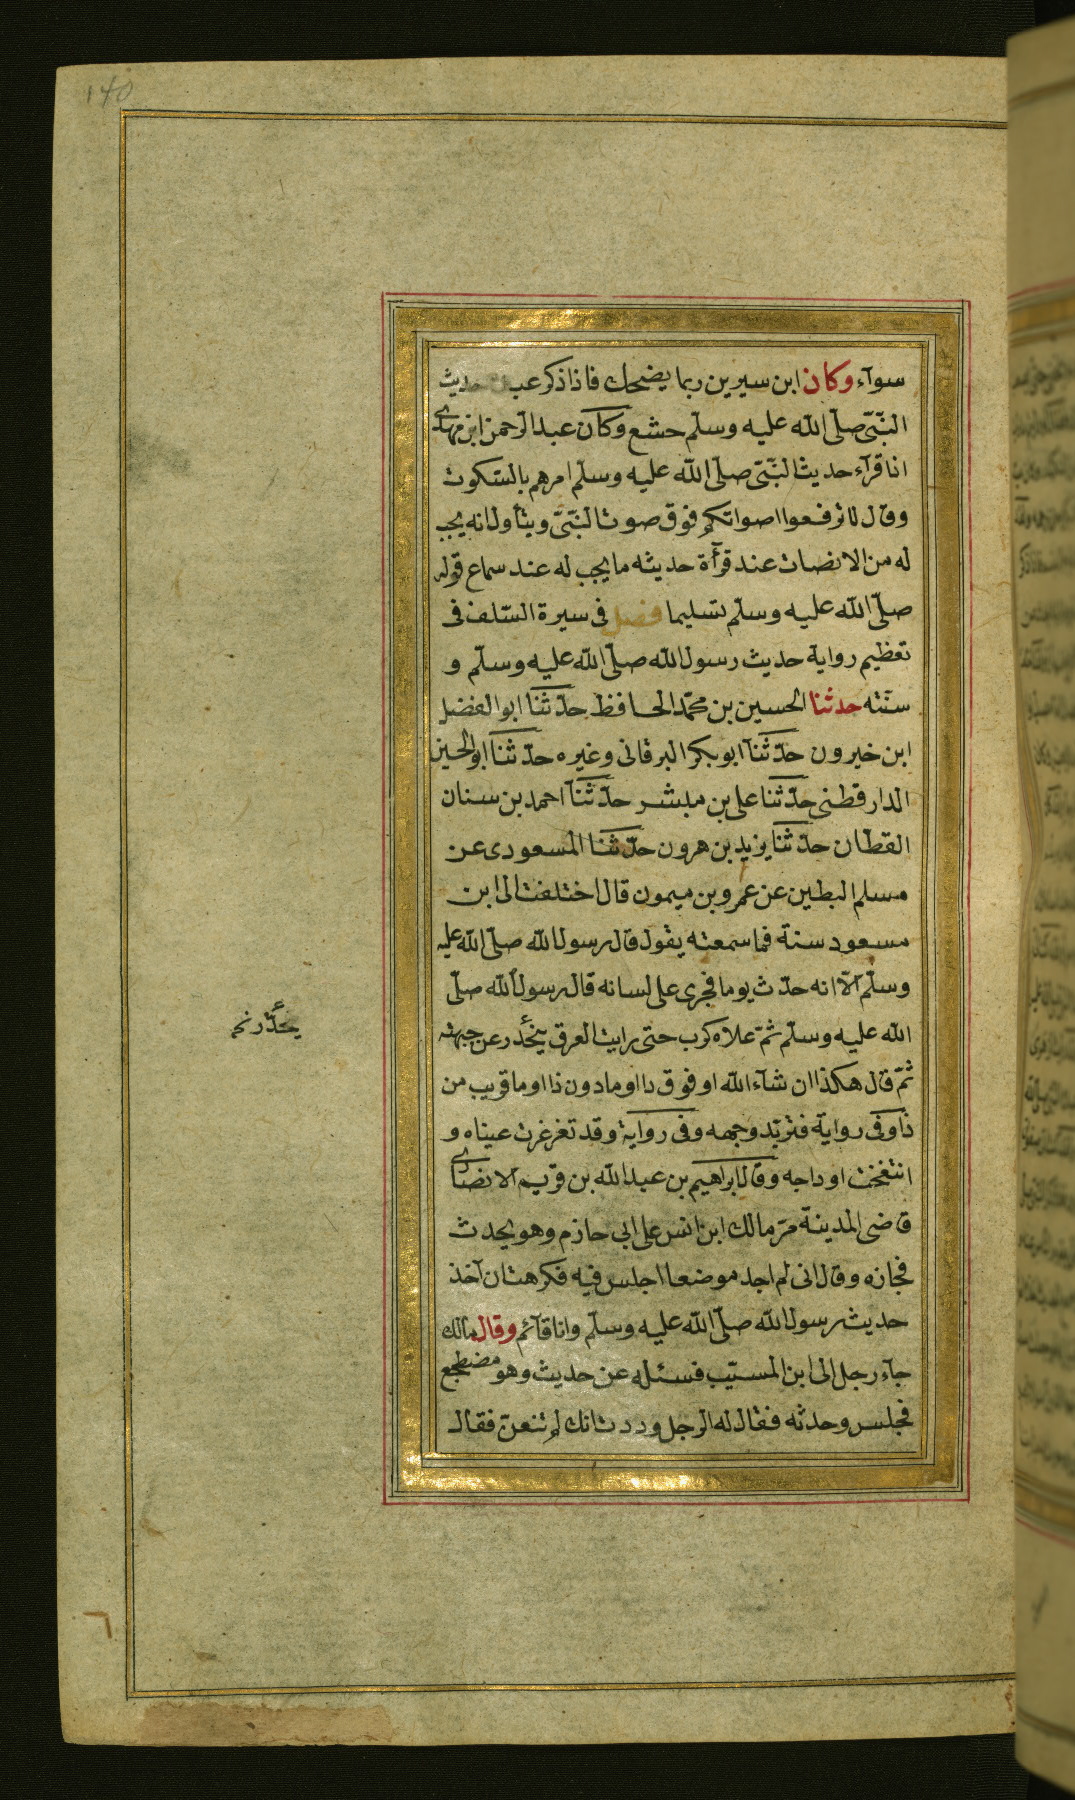 140
سوآء وكان ابن سيرين ربما يضحك فاذا ذكر عنده حديث
النّبّى صلّى الله عليه وسلّم خشع وكان عبد الرحمن ابن مهدى
اذا قرآء حديث النّبّى صلّى الله عليه وسلّم امرهم بالسّكوت
وقال لا ترفعوا اصواتكم فوق صوت النّبّى ويتأول انه يجب
له من الانصات عند قرآة حديثه ما يجب له عند سماع قوله
صلّى الله عليه وسلّم تسليما فصل فى سيرة السّلف فى
تعظيم رواية حديث رسول الله صلّى الله عليه وسلّم و
سنّته حدثنا الحسين بن محمّد الحافظ حدّثنا ابو الفضل
ابن خيرون حدّثنا ابو بكر البرقانى وغيره حدّثنا ابو الحسين
الدارقطنى حدّثنا على بن مبشر حدّثنا احمد بن سنان
القطان حدّثنا يزيد بن هرون حدّثنا المسعودى عن
مسلم البطين عن عمرو بن ميمون قال اختلفت الى ابن
مسعود سنة فما سمعته يقول قال رسول الله صلّى الله عليه
وسلّم الّا انه حدّث يوما فجرى على لسانه قال رسول الله صلّى
الله عليه وسلّم ثمّ علاه كرب حتى رايت العرق يتحدر عن جبهته
ثمّ قال هكذا ان شآء الله او فوق ذا او ما دون ذا او ما قريب من
ذا وفى رواية فتربّد وجهه وفى رواية وقد تغرغرت عيناه و
انتفخت اوداجه وقال ابراهيم بن عبد الله بن قريم الانصارى
قاضى المدينة مرّ مالك ابن انس على ابى حازم وهو يحدث
فجازه وقال انى لم اجد موضعا اجلس فيه فكرهت ان آخذ
حديث رسول الله صلّى الله عليه وسلّم وانا قآئم وقال مالك
جآء رجل الى ابن المسيّب فسئله عن حديث وهو مضطجع
فجلس وحدثه فقال له الرجل وددت انك لم تتعنّ فقال